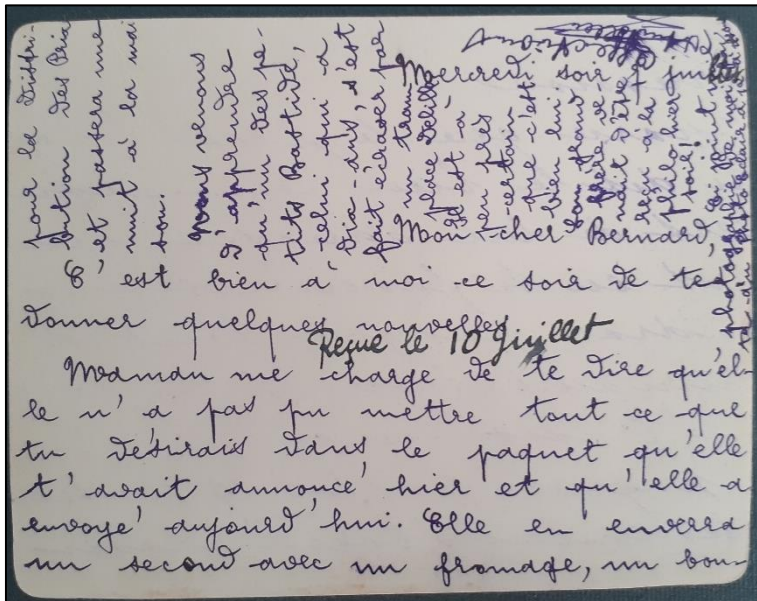 Mercredi soir 7 juillet
Mon cher Bernard,
C'est bien à moi ce soir de te
donner quelques nouvelles.
Reçue le 10 Juillet
Maman me charge de te dire qu'el-
le n'a pas pu mettre tout ce que
tu désirais dans le paquet qu'elle
t'avait annoncé hier et qu'elle a
envoyé aujourd'hui. Elle en enverra
un second avec un fromage, un bou-
pour la Distri-
bution des Prix
et passera une
nuit à la mai
son.
Nous venons
d'apprendre
qu'un des pe-
tits Bastide,
celui qui a
dix-ans, s'est
fait écraser par
un tram
place Delille
Il est à
peu près
certain
que c'est
bien lui
Son grand
frère ve-
nait d'être
reçu à la
philo hier
soir!
photographie de moi